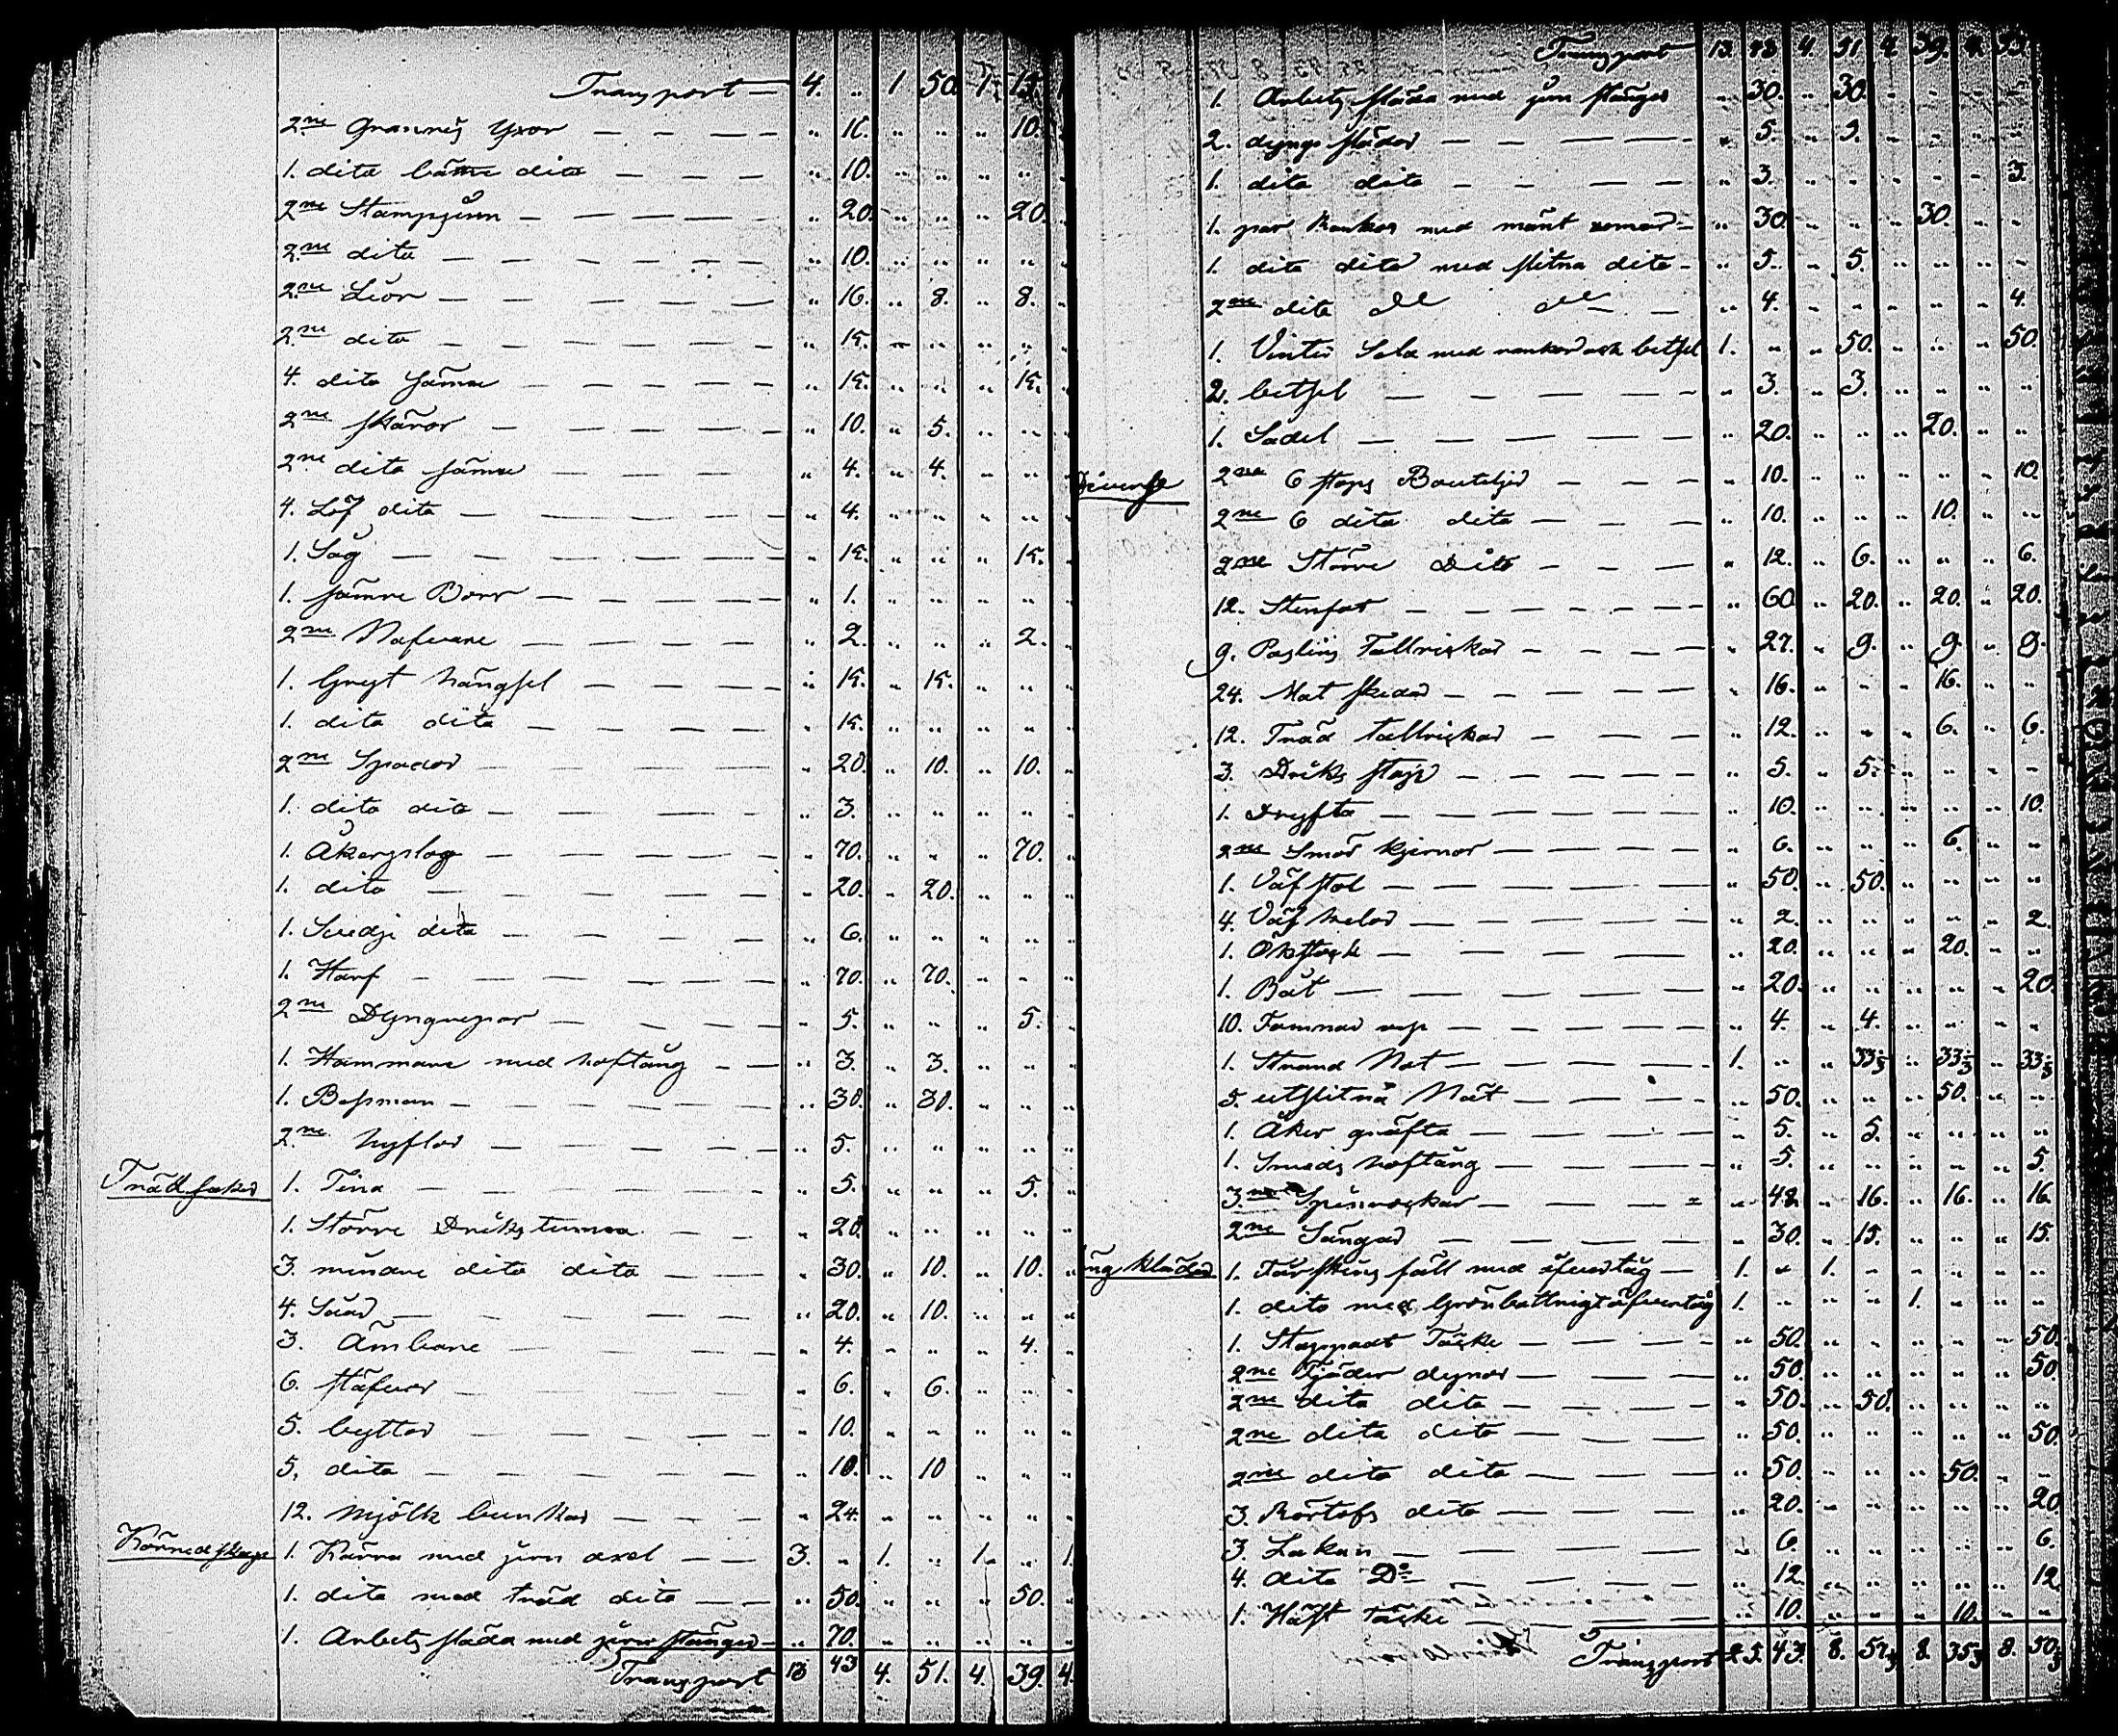 Transport — 4. .. 1 50. 1. 15. 1
2ne Granris Yxor — — — — .. 16. .. .. .. 10.
1. dito bättre dito — — — .. 10. .. .. .. ..
2ne Stampjern — — — — .. 20. .. .. .. 20.
2ne dito — — — — .. 10. .. .. .. ..
2ne Liar — — — — .. 16. .. 8. .. 8.
2ne dito — — — — .. 15. .. .. .. ..
4. dito sämre — — — — .. 15. .. .. .. 15.
2ne skäror — — — — .. 10. .. 5. .. ..
2ne dito sämre — — — — .. 4. .. 4. .. ..
4. Löf dito — — — — .. 4. .. .. .. ..
1. Såg — — — — .. 15. .. .. .. 15.
1. sämre Borr — — — — .. 1. .. .. .. ..
2ne Nafvare — — — — .. 2. .. .. .. 2.
1. Gryt hängsel — — — .. 15. .. 15. .. ..
1. dito dito — — — .. 15. .. .. .. ..
2ne Spador — — — .. 20. .. 10. .. 10.
1. dito dito — — — .. 3. .. .. .. ..
1. Åkerplog — — — .. 70. .. .. .. 70.
1. dito — — — .. 20. .. 20. .. ..
1. Svedje dito — — — .. 6. .. .. .. ..
1. Harf — — — .. 70. .. 70. .. ..
2ne Dyngrepor — — — .. 5. .. .. .. 5.
1. Hammare med hoftång — — .. 3. .. 3. .. ..
1. Bessman — — — .. 30. .. 30. .. ..
2ne hyflar — — — .. 5. .. .. .. ..
Trädsaker 1. Tina — — — .. 5. .. .. .. 5.
1. Större Drikstunna — — .. 20. .. .. .. ..
3. mindre dito dito — — .. 30. .. 10. .. 10.
4. Såar — — — .. 20. .. 10. .. ..
3. Ämbare — — — .. 4. .. .. .. 4.
6. stäfvor — — — .. 6. .. 6. .. ..
5. byttor — — — .. 10. .. .. .. ..
5. dito — — — .. 10. .. 10 .. ..
12. mjölk bunkar — — — .. 24. .. .. .. ..
Köreredskap 1. Kärra med jern axel — — 3. .. 1. .. 1. .. 1.
1. dito med träd dito — — .. 50. .. .. .. 50.
1. Arbets släda med jern stänger — .. 70. .. .. .. ..
Transport 13 43 4. 51. 4. 39. 4.
Transport 13. 43. 4. 51. 4. 39. 4. 53.
1. Arbets släda med jern stänger .. 30. .. 30. .. .. .. ..
2. dyngs slädor — — — — .. 5. .. 5. .. .. .. ..
1. dito dito — — — — .. 3. .. .. .. .. .. 3.
1. par Rankor med mänt remar — .. 30. .. .. .. 30. .. ..
1. dito dito med slitna dito — .. 5. .. 5. .. .. .. ..
2ne dito .. 4. .. .. .. .. .. 4.
1. Vinter Sela med rankor och betsel 1. .. .. 50. .. .. .. 50.
2. betsel — — — — .. 3. .. 3. .. .. .. ..
1. Sadel — — — — .. 20. .. .. .. 20. .. ..
Diverse 2ne 6 stops Bouteljer — — — .. 10. .. .. .. .. .. 10.
2ne 6 dito dito — — — .. 10. .. .. .. 10. .. ..
2ne Större Dito — — — .. 12. .. 6. .. .. .. 6.
12. Stenfat — — — — .. 60 .. 20. .. 20. .. 20.
9. Poslins Tallrickar — — — .. 27. .. 9. .. 9. .. 9.
24. Mat skedar — — — .. 16. .. .. .. 16. .. ..
12. Träd tallrickar — — — .. 12. .. .. .. 6. .. 6.
3. Driks stop — — — — .. 5. .. 5. .. .. .. ..
1. Dryfta — — — — .. 10. .. .. .. .. .. 10.
2ne Smör kjernor — — — .. 6. .. .. .. 6. .. ..
1. Väf stol — — — — .. 50. .. 50. .. .. .. ..
4. Väf .. 2. .. .. .. .. .. 2.
1. Ökstock — — — — .. 20. .. .. .. 20. .. ..
1. Båt — — — — .. 20. .. .. .. .. .. 20.
10. Famnar rep — — — — .. 4. .. 4. .. .. .. ..
1. Strand Not — — — — 1. .. .. 33 1/3 .. 33 1/3 .. 33 1/3
5. utslitna Nät — — — .. 50. .. .. .. 50. .. ..
1. Åker gräfta — — — .. 5. .. 5. .. .. .. ..
1. Smeds hoftång — — — .. 5. .. .. .. .. .. 5.
3ne Spinrockar — — — .. 48. .. 16. .. 16. .. 16.
2ne Sängar — — — .. 30. .. 15. .. .. .. 15.
ng kläder 1. Fårskins fäll med öfvertåg — 1. .. 1. .. .. .. .. ..
1. dito med Grönbottnigt öfvertåg 1. .. .. .. 1. .. .. ..
1. Stoppadt Täcke — — — .. 50. .. .. .. .. .. 50.
2ne Fjäder dynor — — — .. 50. .. .. .. .. .. 50.
2ne dito dito — — — .. 50. .. 50. .. .. .. ..
2ne dito dito — — — .. 50. .. .. .. .. .. 50.
2ne dito dito — — — .. 50. .. .. .. 50. .. ..
3. Rörtofs dito — — — .. 20. .. .. .. .. .. 20.
3. Lakan — — — .. 6. .. .. .. .. .. 6.
4. dito Do — — — .. 12. .. .. .. .. .. 12.
1. Häst täcke — — — .. 10. .. .. .. 10. .. ..
Transport 25. 43. 8. 57 1/3 8. 35 1/3 8. 50 1/3